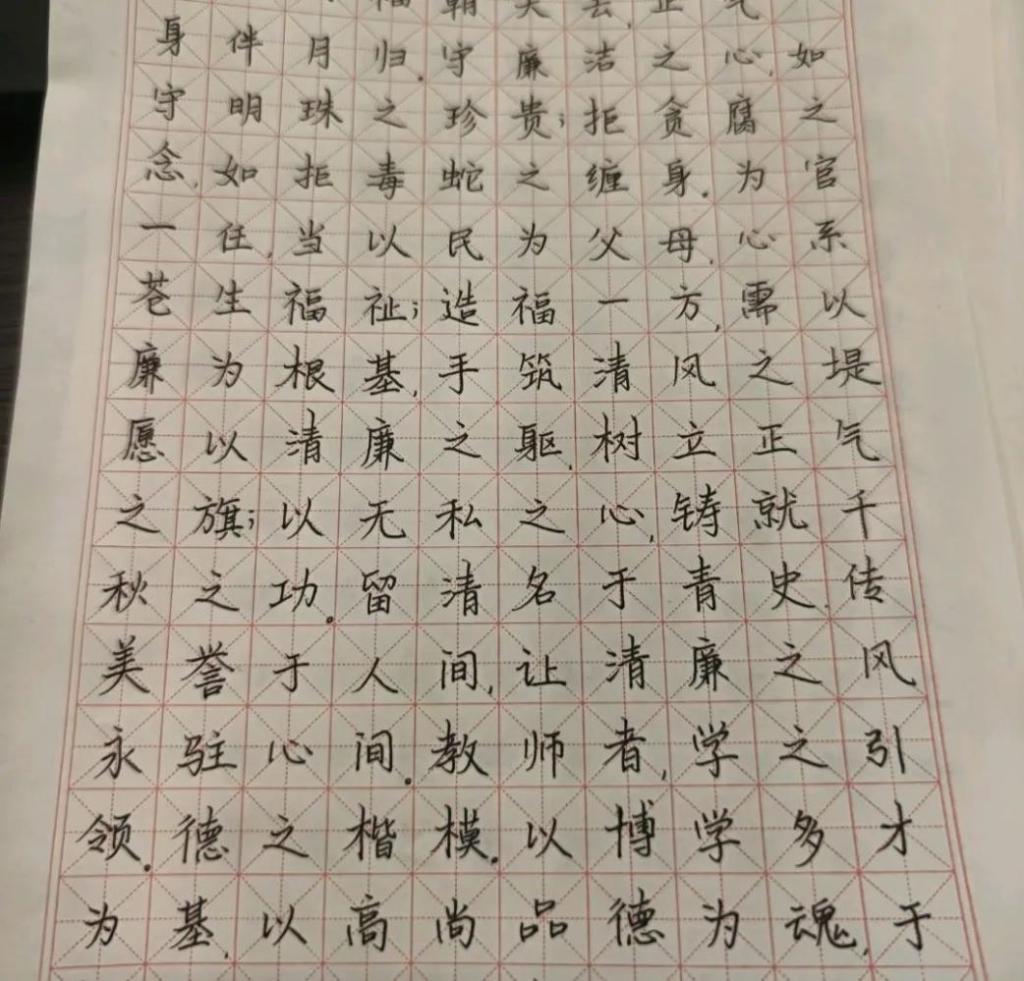 福朝天去,正气
身伴月归。守廉洁之心,如
守明珠之珍贵;拒贪腐之
念,如拒毒蛇之缠身。为官
一任,当以民为父母,心系
苍生福祉;造福一方,需以
廉为根基,手筑清风之堤
愿以清廉之躯,树立正气
之旗;以无私之心,铸就千
秋之功。留清名于青史,传
美誉于人间,让清廉之风
永驻心间。教师者,学之引
领。德之楷模。以博学多才
为基,以高尚品德为魂,于